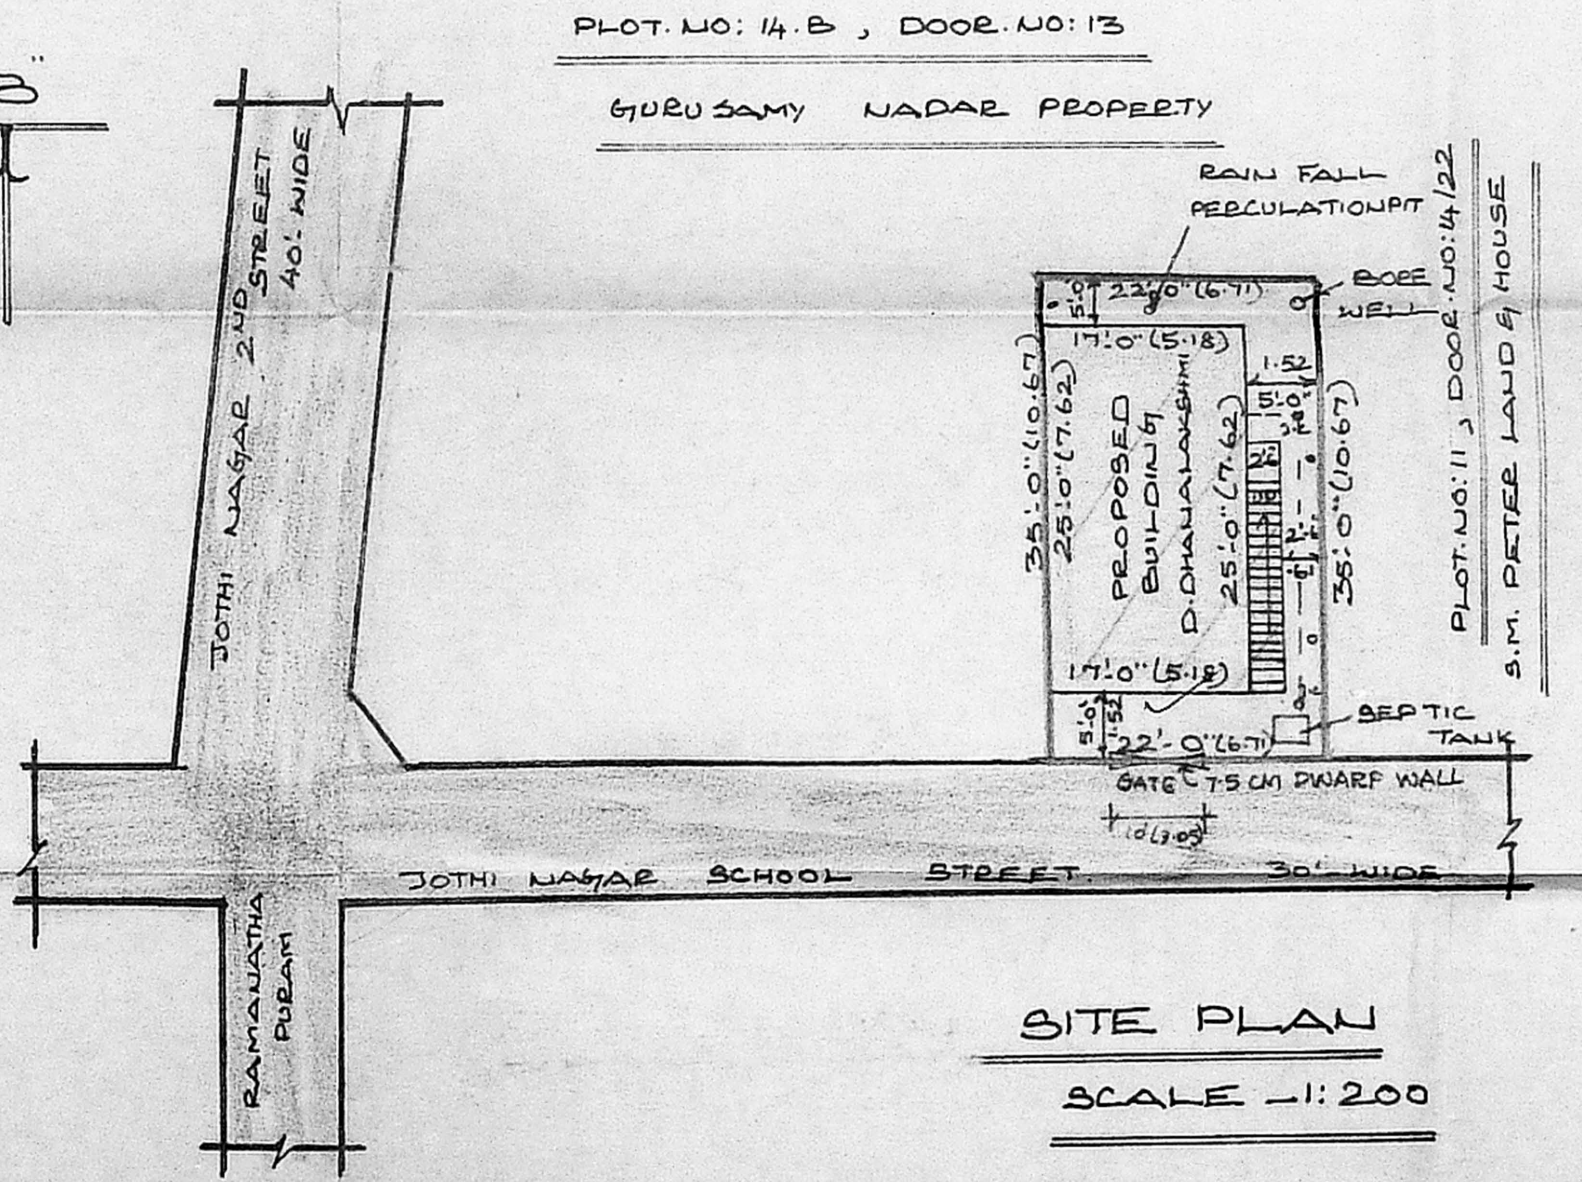 PLOT.NO: 14.B , DOOR.NO: 13
GURUSAMY NADAR PROPERTY
JOTHI NAGAR 2ND STREET
40'- WIDE
RAIN FALL
PERCULATIONPIT
BORE
WELL
PLOT.NO: 11 , DOOR.NO: 4/22
S.M. PETER LAND & HOUSE
5'-0
22'-0" (6.71)
17'-0" (5.18)
1.52
5'-0"
35'-0" (10.67)
25'-0" (7.62)
PROPOSED
BUILDING
D.DHANALAKSHMI
25'-0" (7.62)
35'-0" (10.67)
17'-0" (5.18)
5'-0"
1.52
22'-0" (6.71)
SEPTIC
TANK
GATE 7.5 CM DWARF WALL
10' (3.05)
JOTHI NAGAR SCHOOL STREET. 30'- WIDE
RAMANATHA
PURAM
SITE PLAN
SCALE -1:200